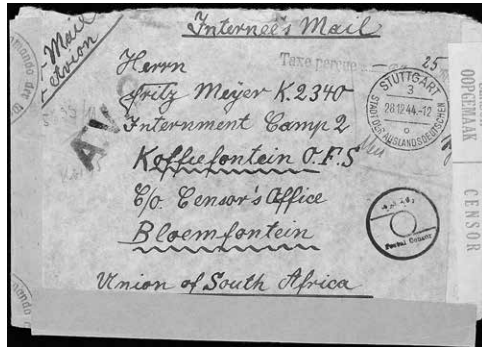 Internee's Mail
-Mail
Avion
Herrn
Taxe perçue
25
Fritz Meyer K.2340
Internment Camp 2
Koffiefontein O.F.S
C/o. Censor's Office
Bloemfontein
Union of South Africa
AV
STUTTGART
3
28.12.44.-12
STADT DER AUSLANDSDEUTSCHEN
OOPGEMAAK
CENSOR
Postal Censor